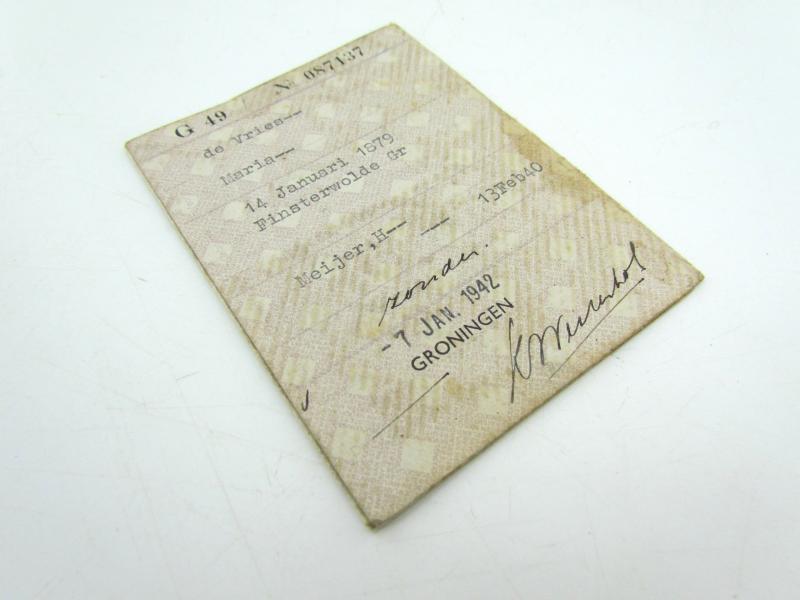 G 49 № 087137
de Vries--
Maria--
14 Januari 1879
Finsterwolde Gr
Meijer,H-- — 13Feb40
zonder.
-7 JAN. 1942
GRONINGEN